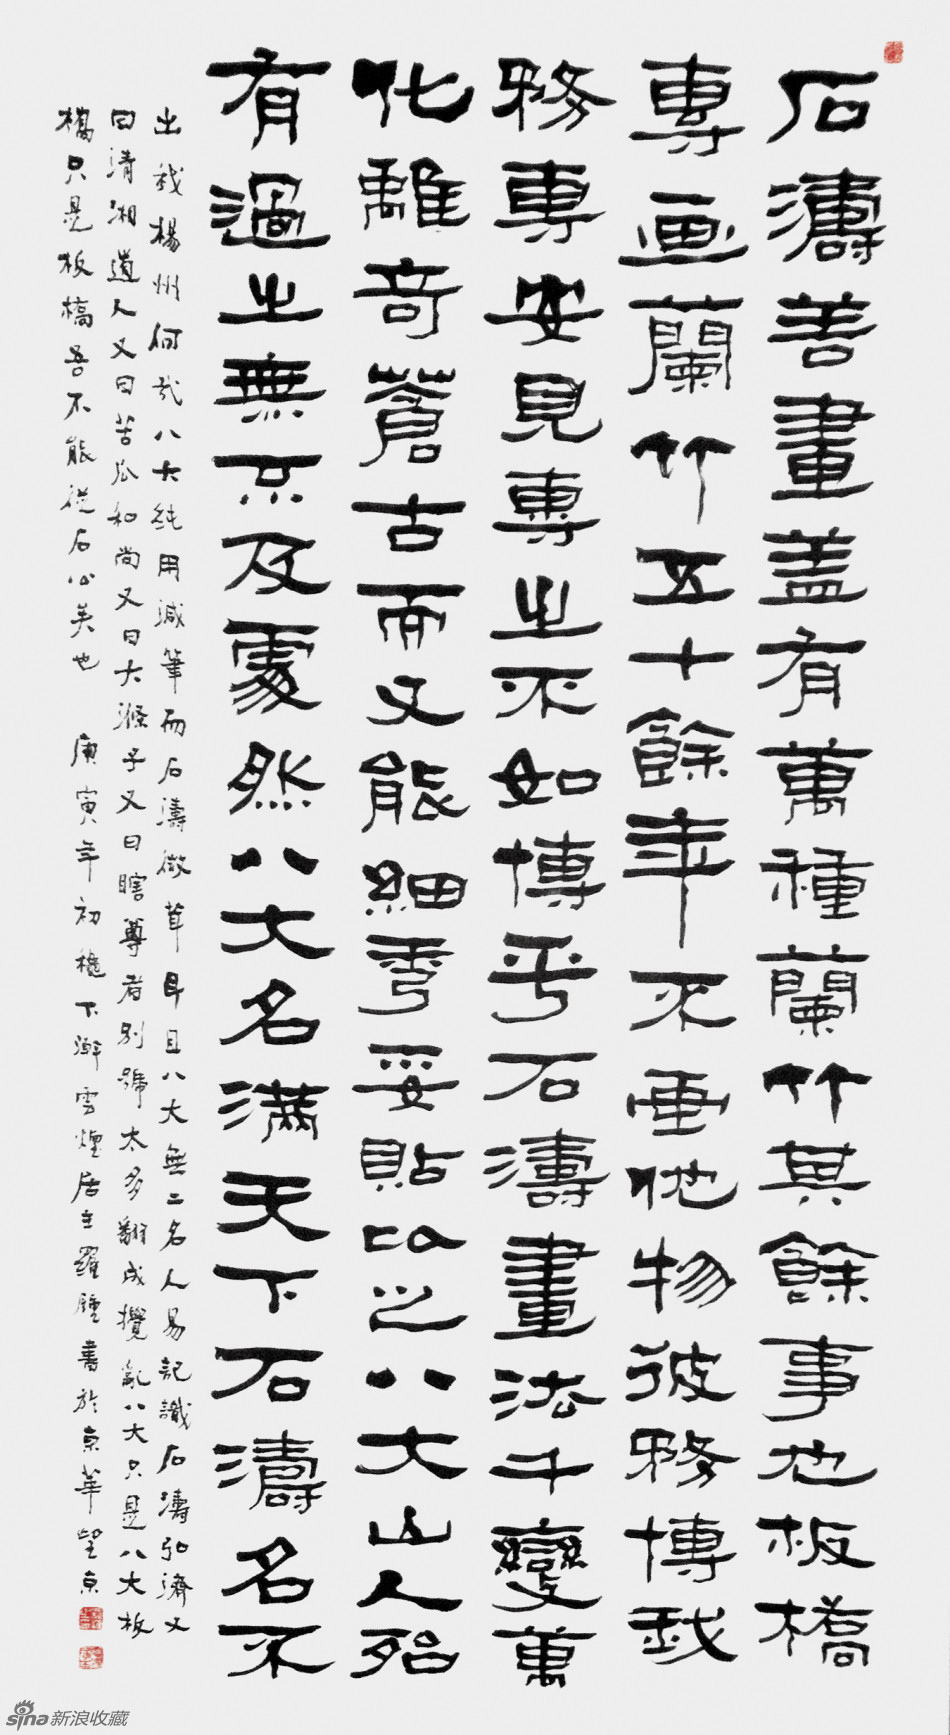 石濤善畫蓋有萬種蘭竹其餘事也板橋
專画蘭竹五十餘年不画他物彼務博我
務專安見專之不如博乎石濤畫法千變萬
化離奇蒼古而又能細秀妥貼比之八大山人殆
有過之無不及處然八大名滿天下石濤名不
出我楊州何哉八大純用減筆而石濤微茸耳且八大無二名人易記識石濤弘濟又
曰清湘道人又曰苦瓜和尚又曰大滌子又曰瞎尊者別號太多翻成攪亂八大只是八大板
橋只是板橋吾不能從石公矣也 庚寅年初秋下澣雲煙居主羅鍾書於京華望京
sina新浪收藏